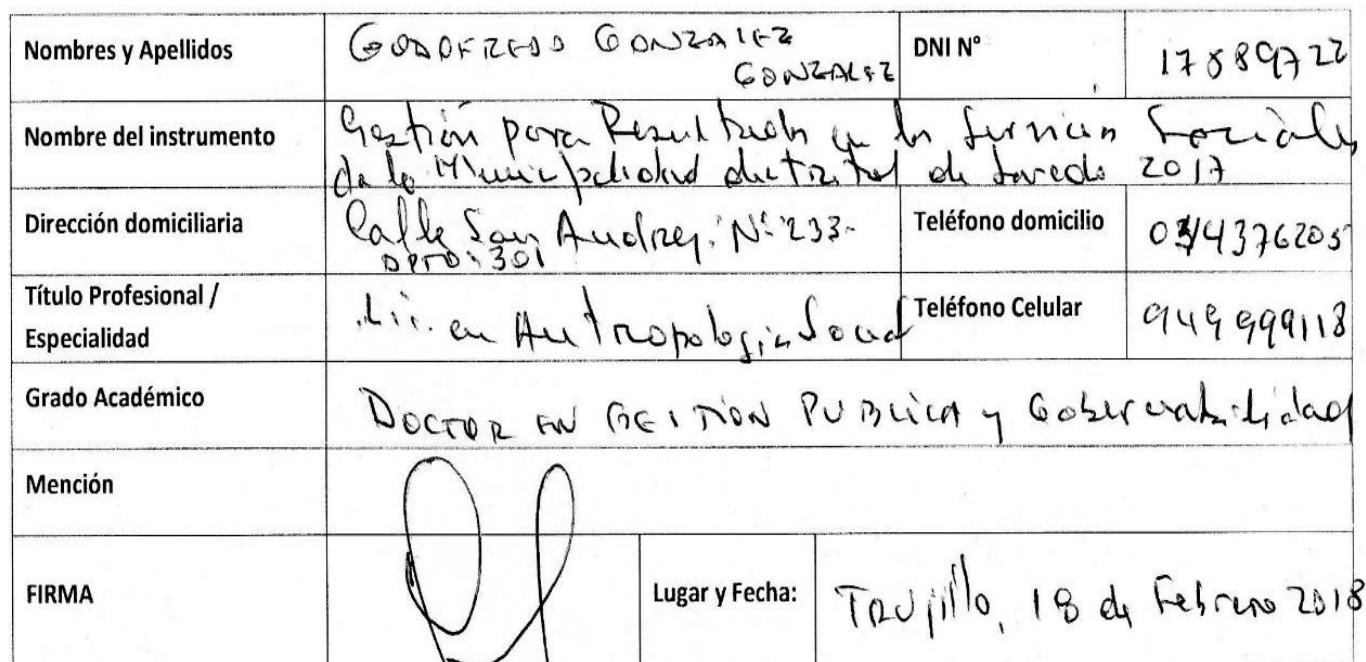 Nombres y Apellidos
GODOFREDO GONZALEZ
GONZALEZ
DNI N°
17889722
Nombre del instrumento
Gestión para Resultados en los Servicios Sociales
de la Municipalidad distrital de Laredo 2017
Dirección domiciliaria
Calle San Andres. N° 233-
DPTO: 301
Teléfono domicilio
044376205
Título Profesional /
Especialidad
Lic. en Antropologia Social
Teléfono Celular
949999118
Grado Académico
DOCTOR EN GESTION PUBLICA y Gobernabilidad
Mención
FIRMA
Lugar y Fecha:
Trujillo, 18 de Febrero 2018